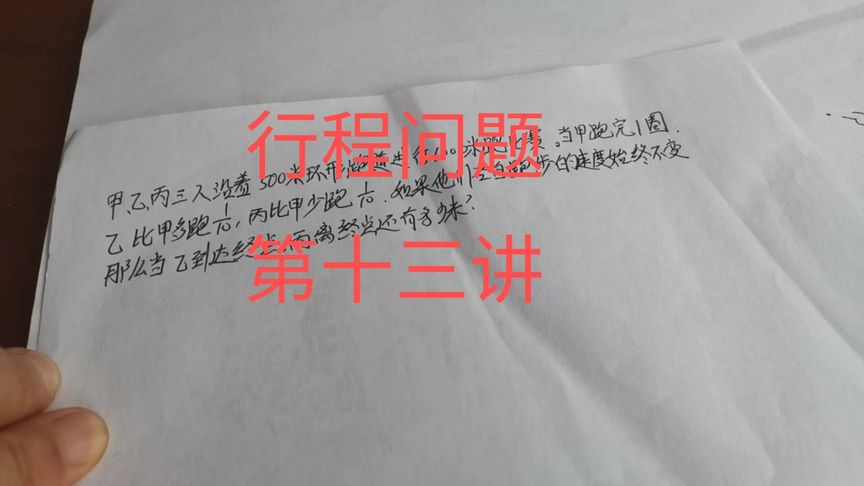 行程问题
第十三讲
甲、乙、丙三人沿着500米环形跑道进行 米跑比赛。当甲跑完1圈.
乙比甲多跑1/10,丙比甲少跑1/10.如果他们各自跑步的速度始终不变
那么当乙到达终点,丙离终点还有多少米?